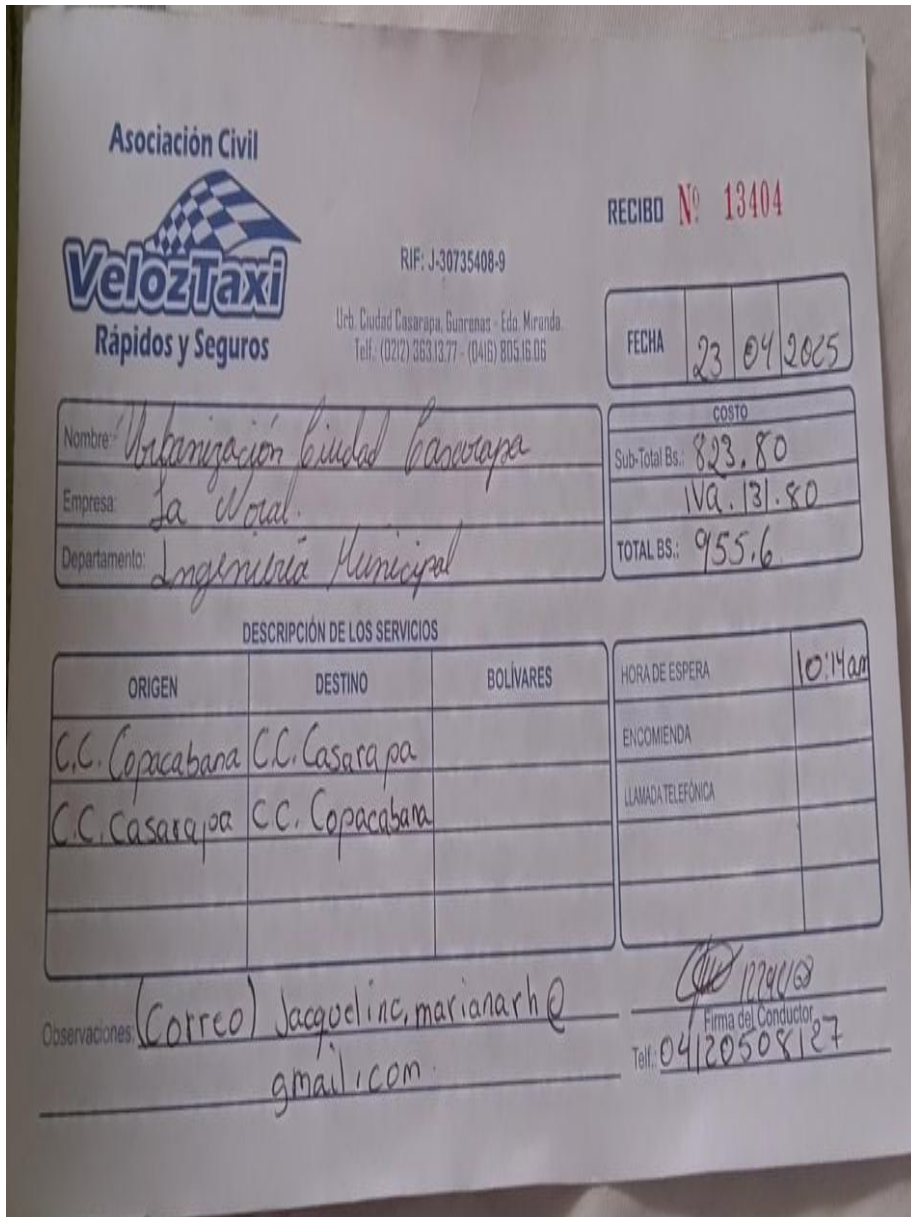 Asociación Civil
VelozTaxi
Rápidos y Seguros
RIF: J-30735408-9
Urb. Ciudad Casarapa, Guarenas - Edo. Miranda
Telf.: (0212) 363.13.77 - (0416) 805.16.06
RECIBO Nº 13404
FECHA 23 04 2025
Nombre: Urbanización Ciudad Casarapa
Empresa: La
Departamento: Ingeniería Municipal
COSTO
Sub-Total Bs.: 823.80
IVa. 131.80
TOTAL BS.: 955.6
DESCRIPCIÓN DE LOS SERVICIOS
ORIGEN DESTINO BOLÍVARES
C.C. Copacabana C.C. Casarapa
C.C. Casarapa C.C. Copacabana
HORA DE ESPERA 10:14am
ENCOMIENDA
LLAMADA TELEFÓNICA
Observaciones: (Correo) Jacqueline.marianarh@
gmail.com
Firma del Conductor
Telf.: 04120508127